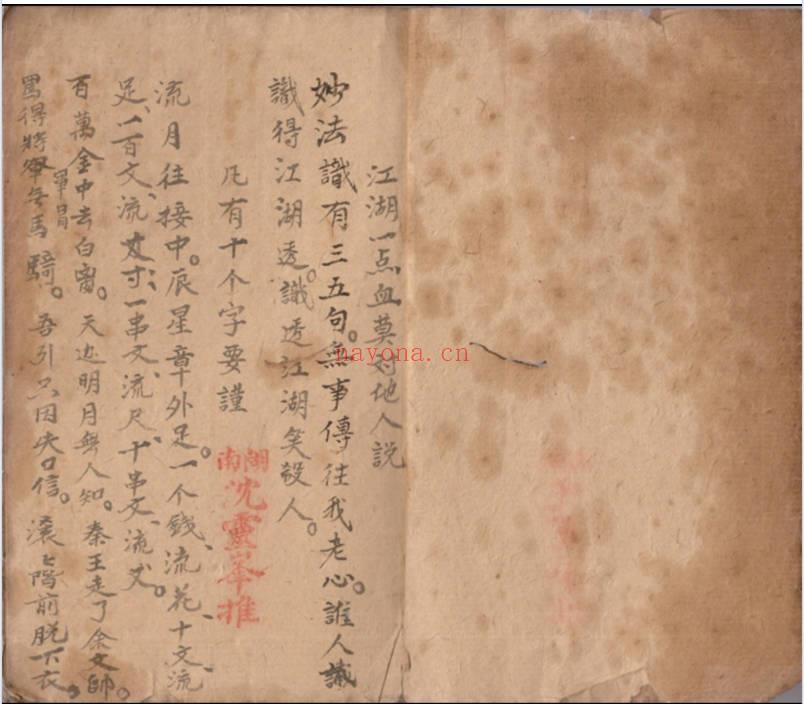 江湖一点血莫对他人説
妙法識有三五句。無事傳往我老心。誰人識
識得江湖透。識透江湖笑殺人。
凡有十个字要謹
湖南
沈靈峯推
流月往接中。辰星章外足。一个钱、流花、十文流
足、一百文、流寸、一串文、流尺、十串文、流丈。
百萬金中去白蜜。天边明月無人知。秦王走了余文帥。
罵得將軍無馬騎。吾引只因失口信。滚上階前脱下衣。
nayona.cn